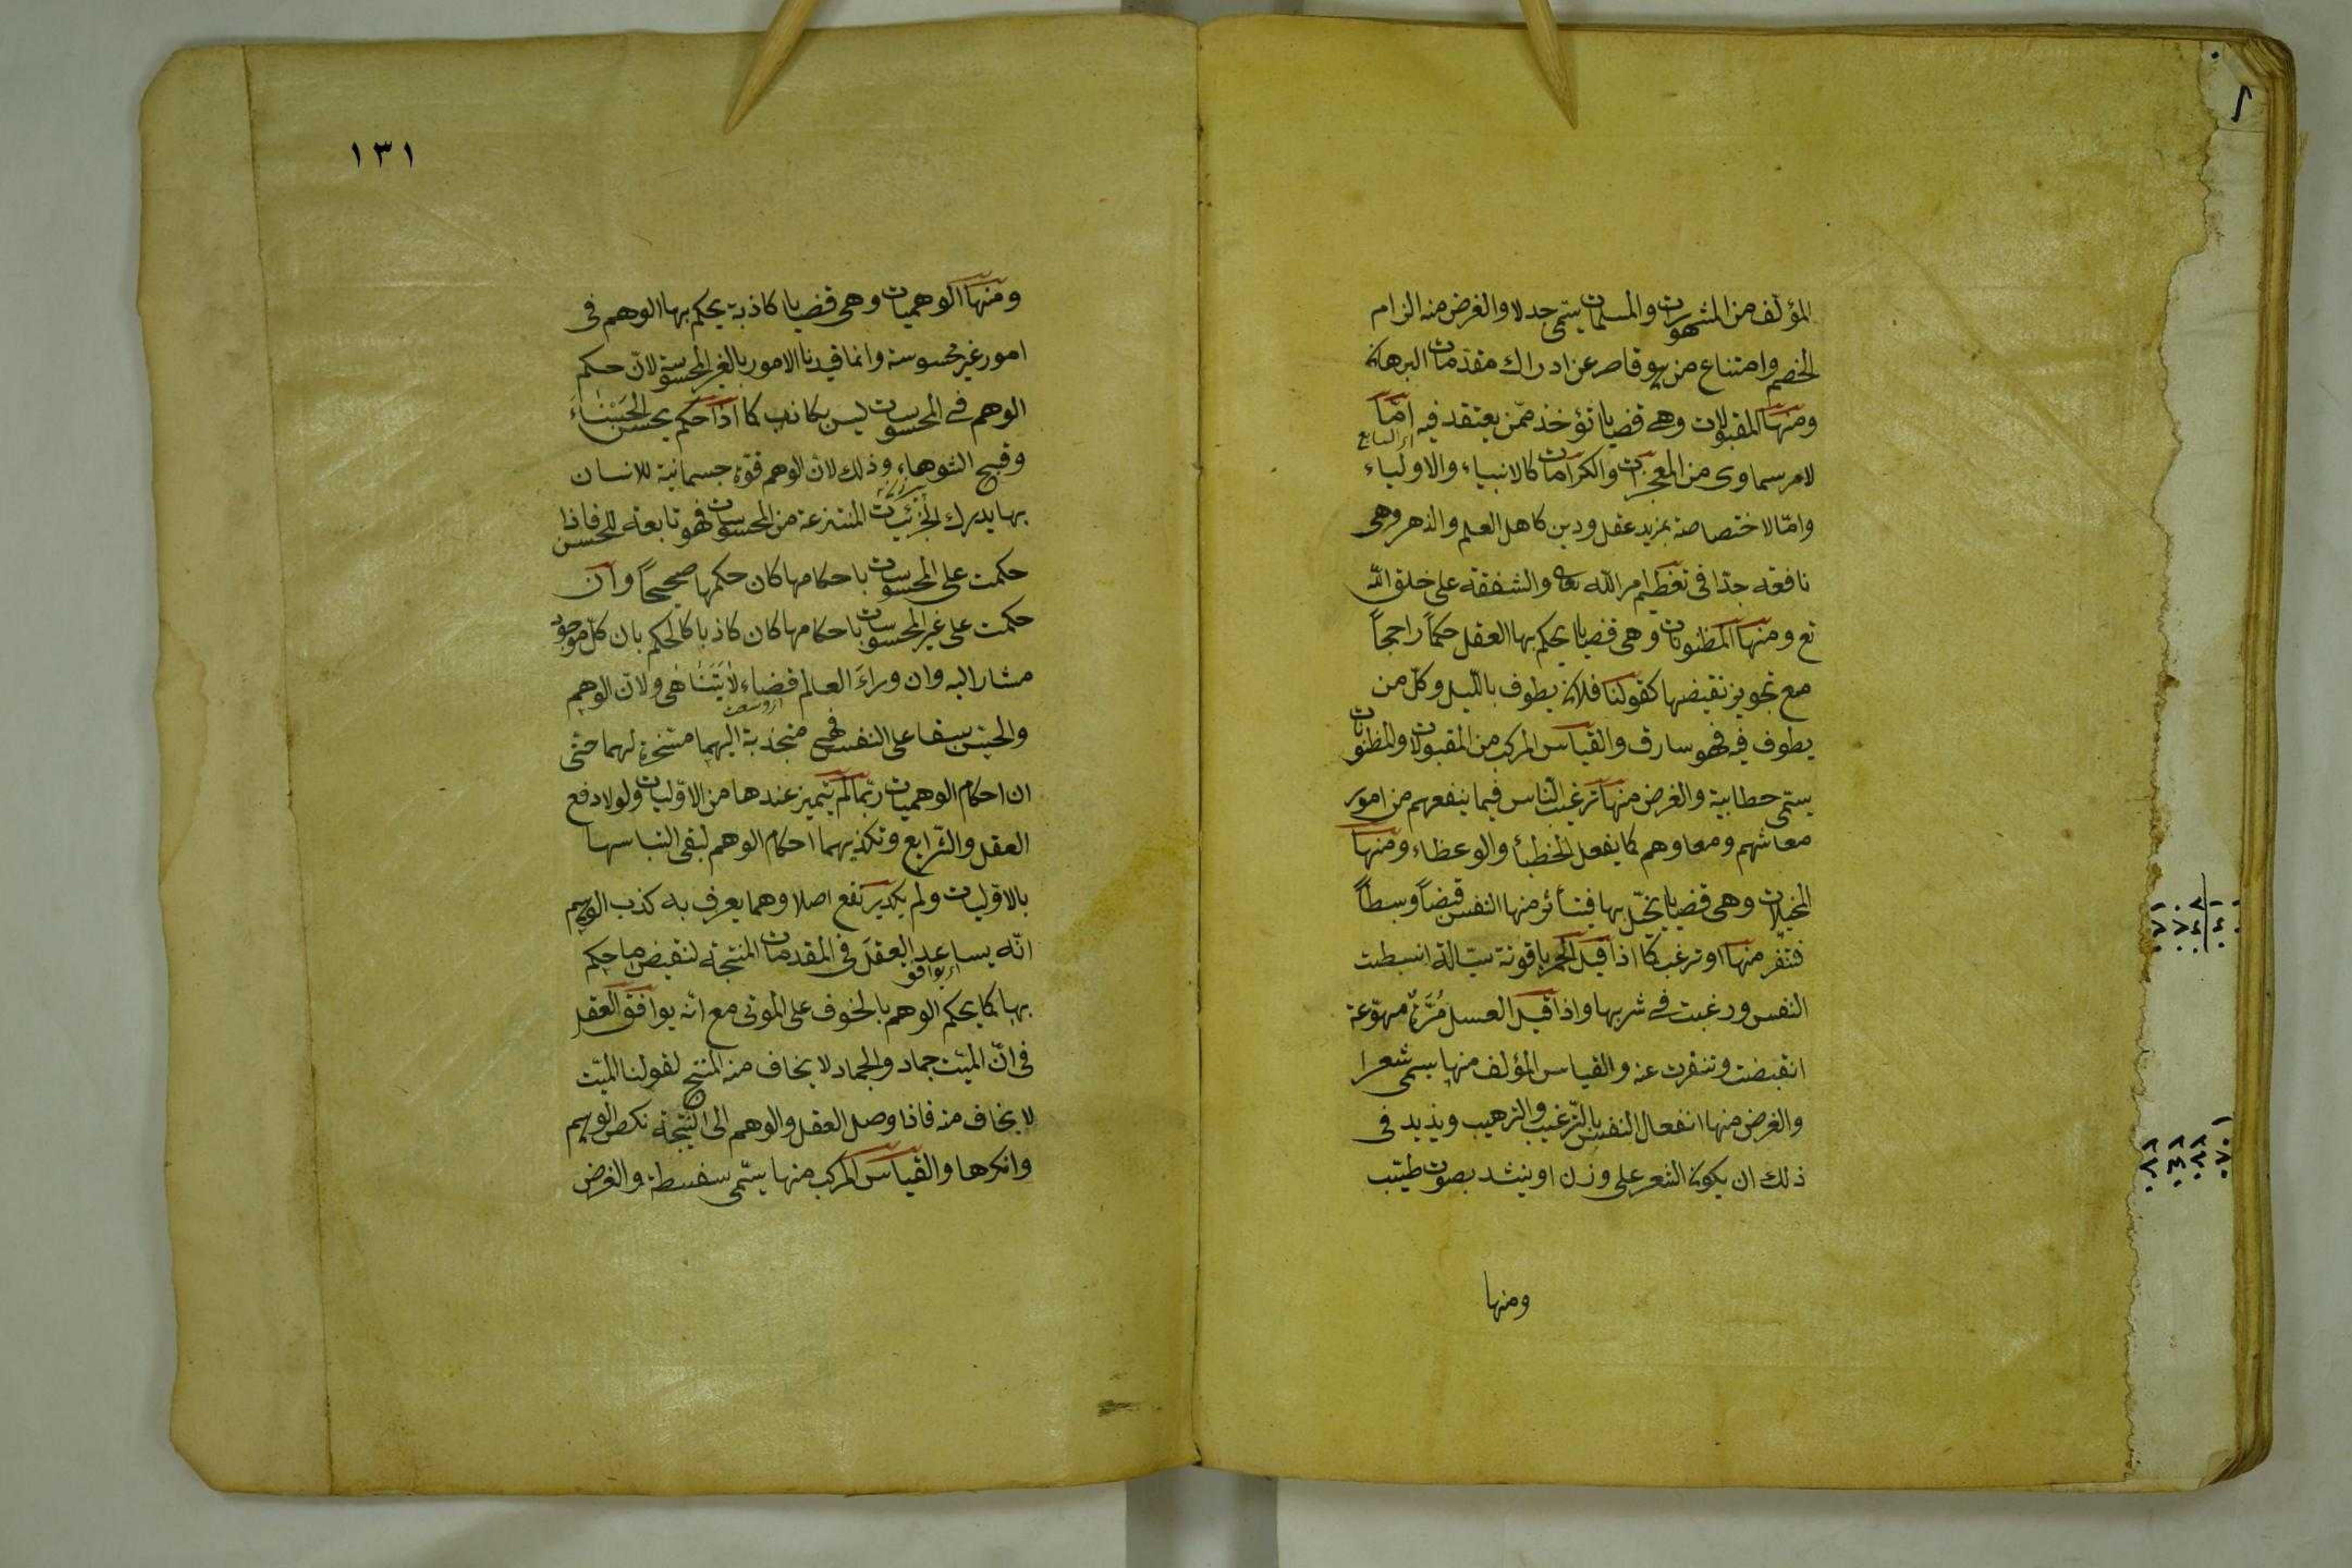 المؤلف من المشهورات والمسلمات يسمى جدلا والغرض منه الزام
الخصم وامتناع من هو قاصر عن ادراك مقدمات البرهان
ومنها المقبولات وهى قضايا تؤخذ ممن يعتقد فيه امّا
لامر سماوى من المعجزات والكرامات كالانبياء والاولياء
وامّا لاختصاصه بمزيد عقل ودين كاهل العلم والزهد وهى
نافعه جدّا فى تعظيم امر الله تعالى والشفقة على خلق الله
تع ومنها المظنونات وهى قضايا يحكم بها العقل حكماً راجحاً
مع تجويز نقيضها كقولنا فلان يطوف بالليل وكل من
يطوف فيه فهو سارق والقياس المركب من المقبولات والمظنونات
يسمّى خطابية والغرض منها ترغيب الناس فيما ينفعهم من امور
معاشهم ومعاوهم كما يفعل الخطبأ والوعظاء ومنها
المخيلات وهى قضايا يخيّل بها فيتأثر منها النفس قبضاً وبسطاً
فتنفّر منها او ترغب كما اذا قيل الخمر ياقوتة سيّالة انبسطت
النفس ورغبت فى شربها واذا قيل العسل مُرّة مهوّعة
انقبضت وتنفرت عنه والقياس المؤلف منها يسمى شعرا
والغرض منها انفعال النفس بالترغيب والترهيب ويزيد فى
ذلك ان يكون الشعر على وزن او ينشد بصوت طيّب
ومنها
١٣١
ومنها الوهميات وهى قضايا كاذبة يحكم بها الوهم فى
امور غير محسوسة وانما قيدنا الامور بالغير المحسوسة لانّ حكم
الوهم فى المحسوسات ليس بكاذب كما اذا حكم بحسن الحسناء
وقبح الشوهاء وذلك لان الوهم قوّة جسمانية للانسان
بها يدرك الجزئيات المنتزعة من المحسوسات فهو تابعة للحسن فاذا
حكمت على المحسوسات باحكامها كان حكمها صحيحاً وان
حكمت على غير المحسوسات باحكامها كان كاذبا كالحكم بان كلّ موجود
مشار اليه وان وراء العالم فضاء لا يتناهى ولانّ الوهم
والحسّ سبقا على النفس فهى منجذبة اليهما مسخرة لهما حتى
ان احكام الوهميات ربّما لم يتميز عندها من الاوّليات ولولا دفع
العقل والشرايع وتكذيبهما احكام الوهم لبقى التباسها
بالاوّليات ولم يكد يرتفع اصلا وهما يعرف به كذب الوهم
انّه يساعد العقل فى المقدمات المنتجة لنقيض ما حكم
بها كما يحكم الوهم بالخوف على الموتى مع انّه يوافق العقل
فى انّ الميّت جماد والجماد لا يخاف منه المنتج لقولنا الميّت
لا يخاف منه فاذا وصل العقل والوهم الى النتيجة نكص الوهم
وانكرها والقياس المركب منها يسّمى سفسطة والغرض